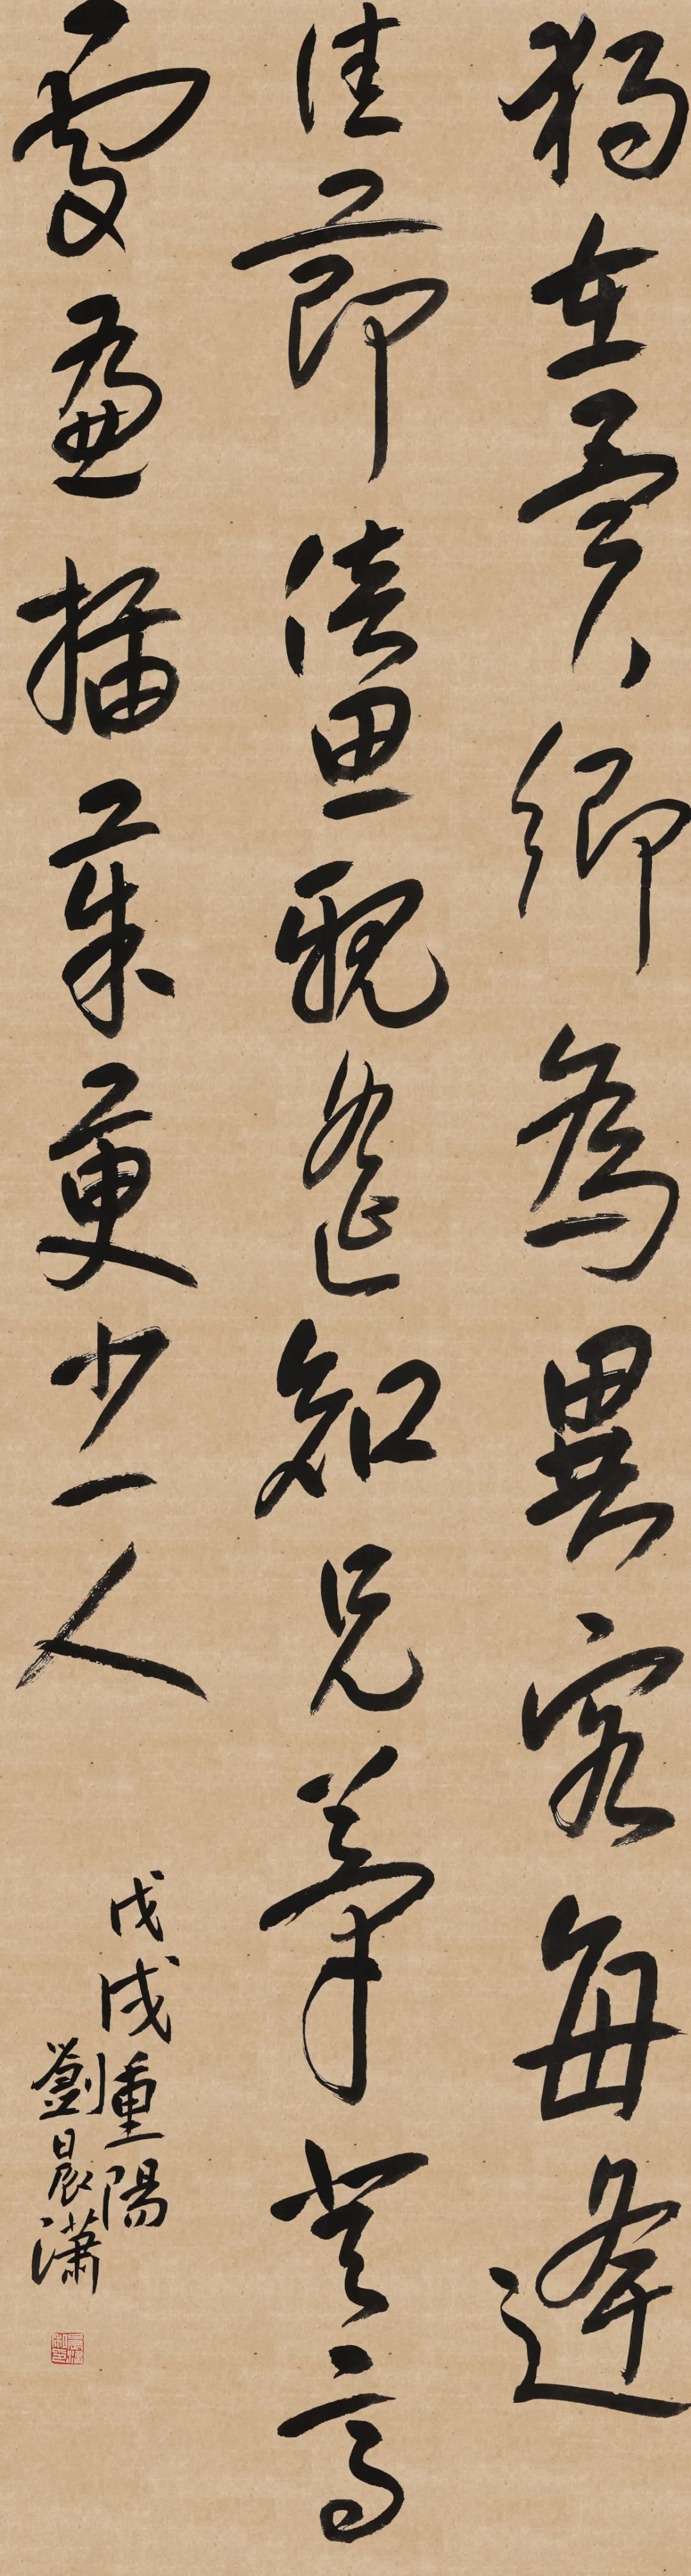 獨在異鄉為異客每逢
佳節倍思親遙知兄弟登高
處遍插茱萸少一人
戊戌重陽
劉晨瀟